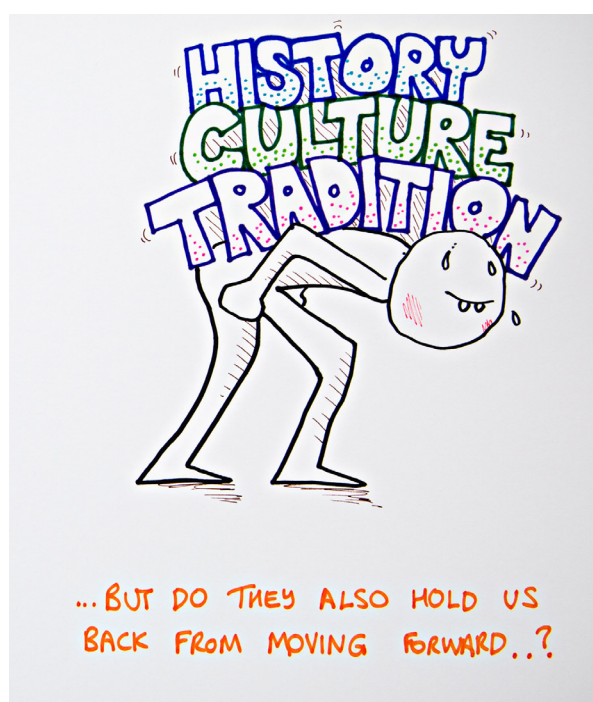 HISTORY
CULTURE
TRADITION
...BUT DO THEY ALSO HOLD US
BACK FROM MOVING FORWARD..?